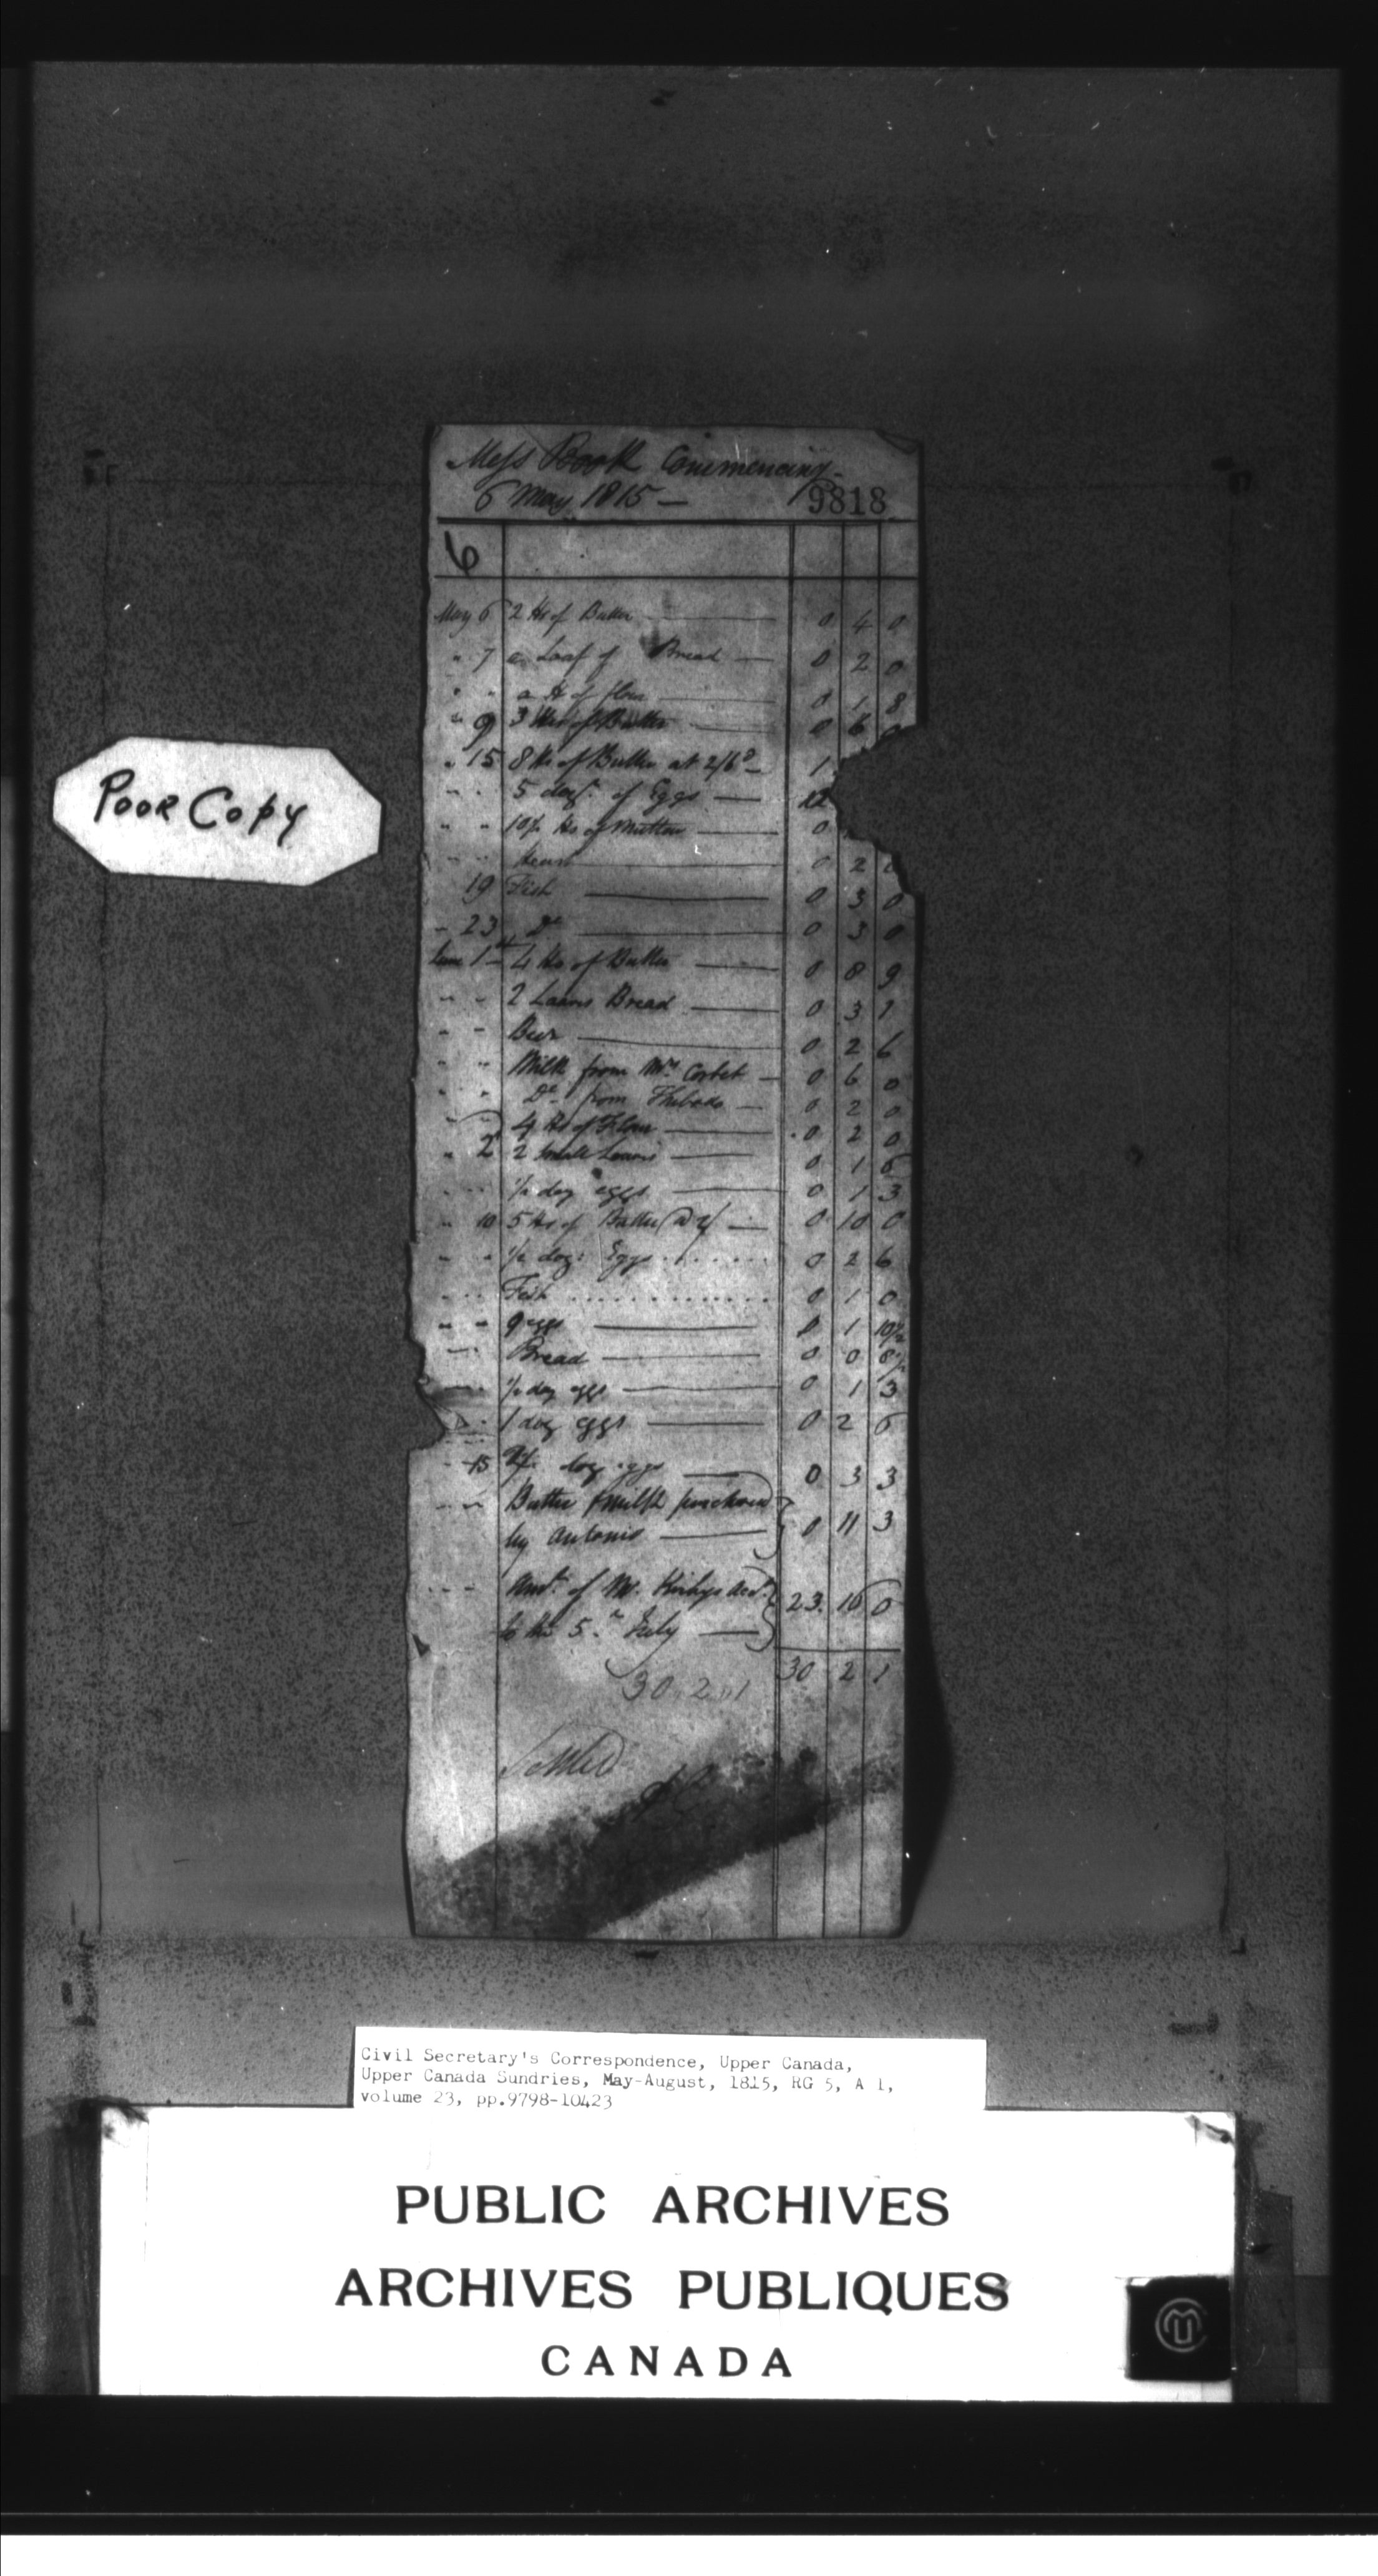 Mess Book Commencing -
6 May 1815 — 9818
6
May 6 2 lbs of Butter — 0 4 0
" 7 a Loaf of Bread — 0 2 0
" " a lb of flour — 0 1 8
" 9 3 lbs of Butter — 0 6
" 15 8 lbs of Butter at 2/6 — 1
" " 5 dozn. of Eggs — 12
" " lbs of Mutton — 0
" " 0 2
19 Fish — 0 3 0
" 23 Do — 0 3 0
June 1st 4 lbs of Butter — 0 8 9
" " 2 Loaves Bread — 0 3 1
" " Beer — 0 2 6
" " Milk from Mrs. Corbet — 0 6 0
" " Do from Thibodo — 0 2 0
" " 4 lbs of Flour — 0 2 0
" 2 2 small Loaves — 0 1 6
" " 1/2 doz eggs — 0 1 3
" 10 5 lbs of Butter @ 2/ — 0 10 0
" " 1/2 doz: Eggs . . . . . . 0 2 6
" " Fish . . . . . . . . . . . 0 1 0
" " 9 eggs — 0 1 10 1/2
" " Bread — 0 0 8 1/2
" " 1/2 doz eggs — 0 1 3
" 1 doz eggs — 0 2 6
" 15 doz eggs — 0 3 3
" " Butter & milk purchased
by Antonio — 0 11 3
" " Amt. of Mr. Kirbys Acct.
to the 5th July — 23. 16 0
30 2 1
30 " 2 " 1
Settled
POOR COPY
Civil Secretary's Correspondence, Upper Canada,
Upper Canada Sundries, May-August, 1815, RG 5, A 1,
volume 23, pp.9798-10423
PUBLIC ARCHIVES
ARCHIVES PUBLIQUES
CANADA